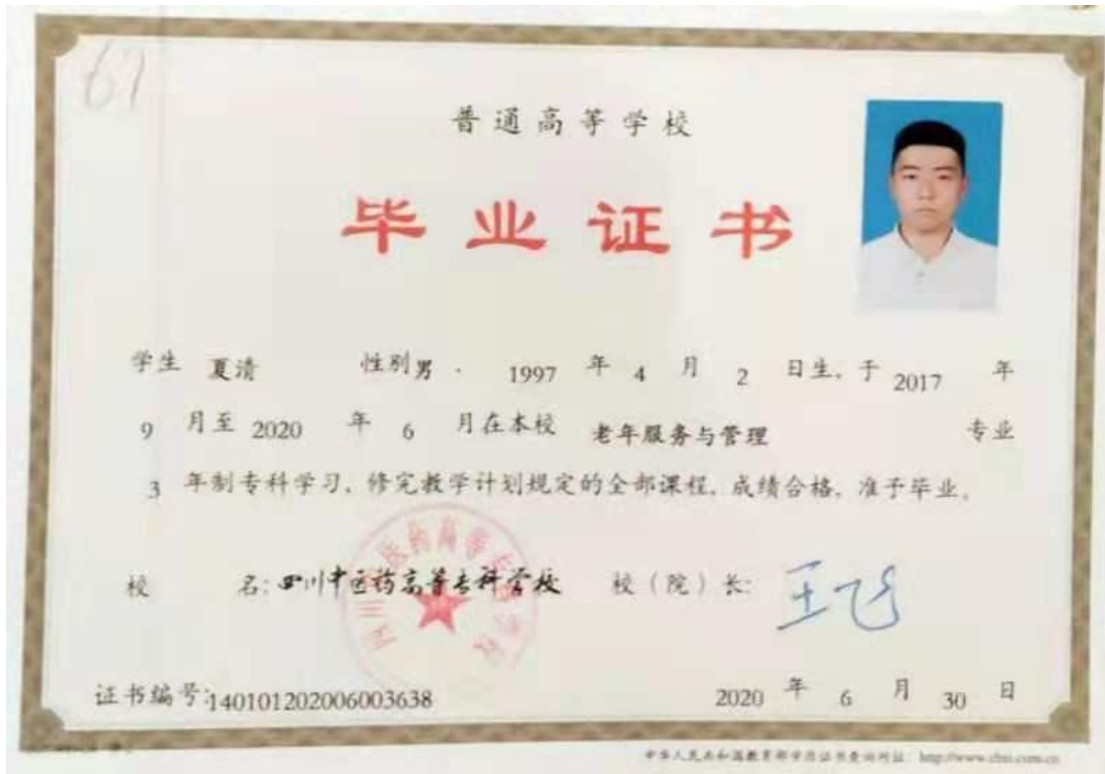 67
普通高等学校
毕业证书
学生 夏清 性别 男 . 1997 年 4 月 2 日生, 于 2017 年
9 月至 2020 年 6 月在本校 老年服务与管理 专业
3 年制专科学习, 修完教学计划规定的全部课程, 成绩合格, 准予毕业.
校 名: 四川中医药高等专科学校 校 (院) 长: 王飞
证书编号: 140101202006003638 2020 年 6 月 30 日
中华人民共和国教育部学历证书查询网址: http://www.chsi.com.cn